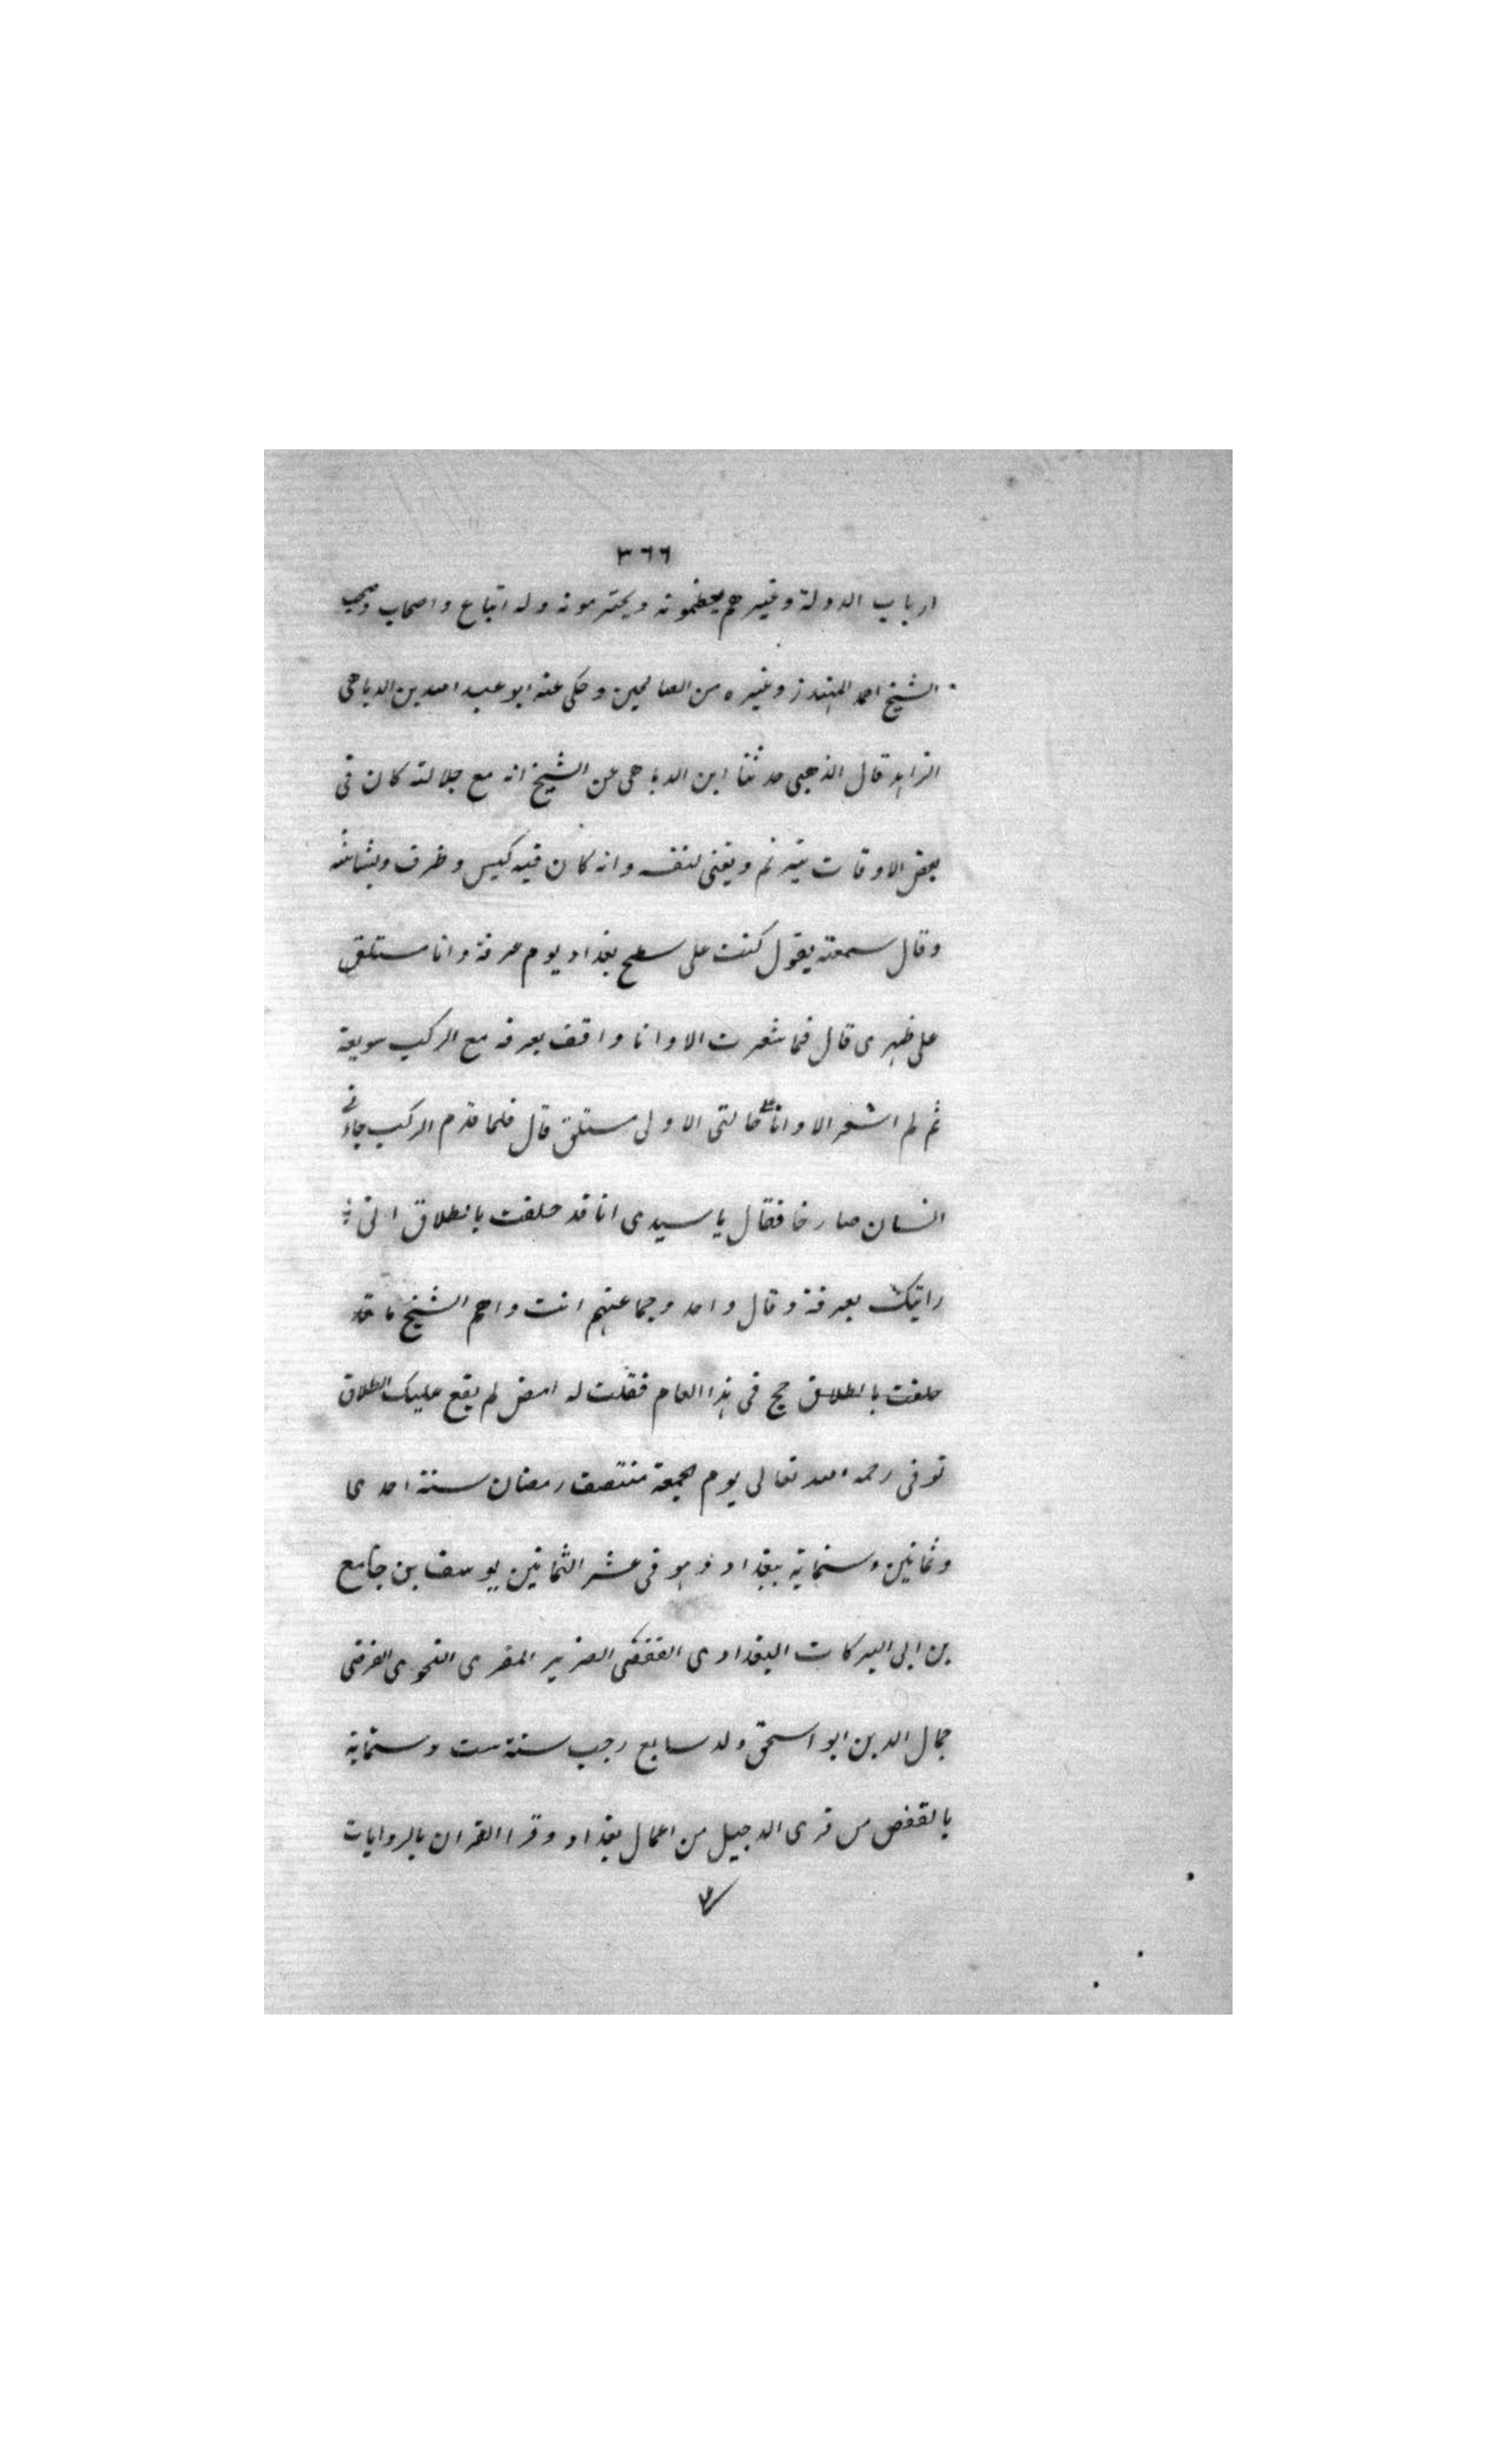 ٣٦٦
ارباب الدولة وغيرهم يعظمونه ويحترمونه وله اتباع واصحاب وصحب
الشيخ احمد المهندز وغيره من الصالحين وحكى عنه ابو عبد الله بن الدباهى
الزاهد قال الذهبى حدثنا ابن الدباهى عن الشيخ انه مع جلالته كان فى
بعض الاوقات يترنم ويغنى لنفسه وانه كان فيه كيس وظرف وبشاشه
وقال سمعته يقول كنت على سطح بغداد يوم عرفة وانا مستلق
على ظهرى قال فما شعرت الا وانا واقف بعرفه مع الركب سويعة
ثم لم اشعر الا وانا على حالتى الاولى مستلق قال فلما قدم الركب جاءنى
انسان صارخا فقال يا سيدى انا قد حلفت بالطلاق انى
راتيك بعرفة وقال واحد وجماعتهم انت واهم الشيخ ما
حلفت بالطلاق حج فى هذا العام فقلت له امض لم يقع عليك الطلاق
توفى رحمه الله تعالى يوم الجمعة منتصف رمضان سنة احدى
وثمانين وستماية ببغداد وهو فى عشر الثمانين يوسف بن جامع
بن ابى البركات البغدادى القفصى الضرير المقرى النحوى الفرضى
جمال الدين ابو اسحق ولد سابع رجب سنة ست وستماية
بالقفص من قرى الدجيل من اعمال بغداد وقرا القران بالروايات